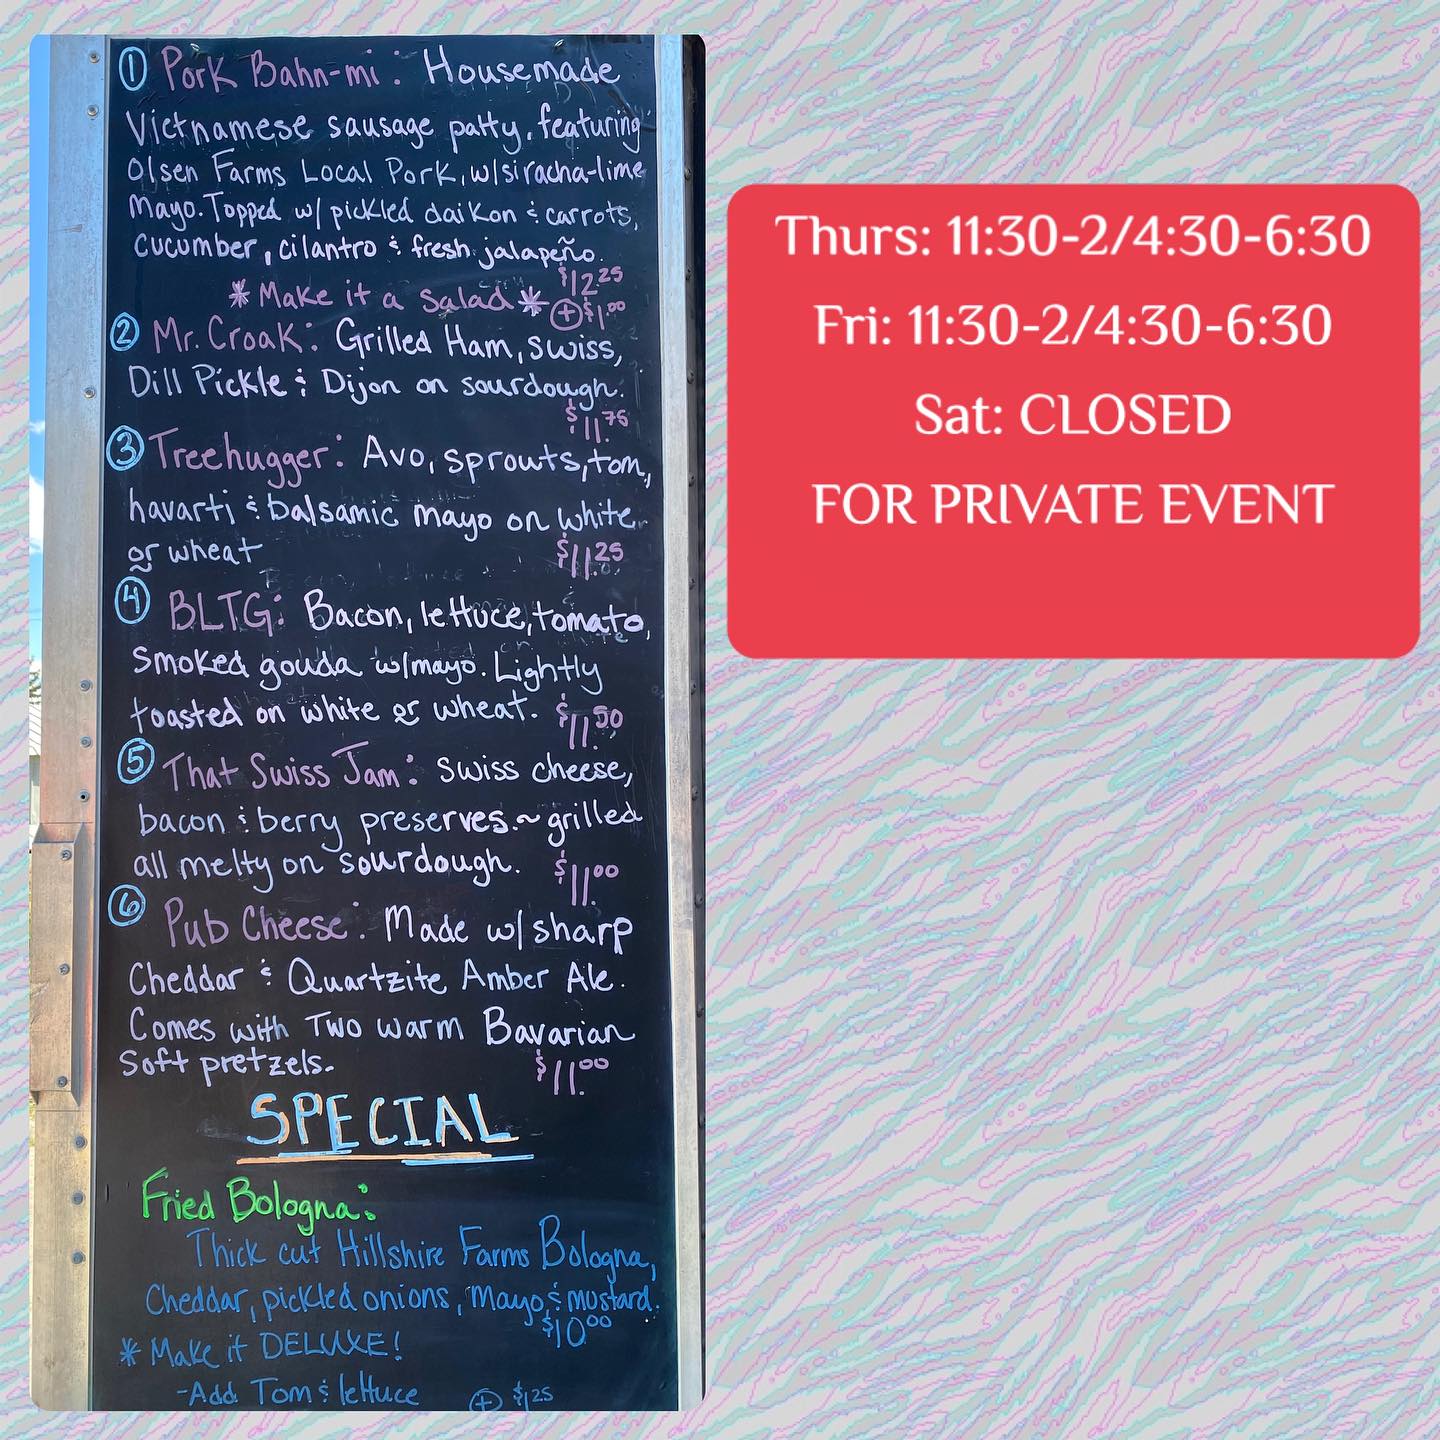 ① Pork Bahn-mi: Housemade
Vietnamese sausage patty, featuring
Olsen Farms Local Pork, w/siracha-lime
Mayo. Topped w/ pickled daikon & carrots,
cucumber, cilantro & fresh jalapeño.
$12.25
*Make it a Salad* ⊕$1.00
② Mr. Croak: Grilled Ham, swiss,
Dill Pickle & Dijon on sourdough.
$11.75
③ Treehugger: Avo, sprouts, tom,
havarti & balsamic mayo on white
or wheat $11.25
④ BLTG: Bacon, lettuce, tomato,
smoked gouda w/mayo. Lightly
toasted on white or wheat. $11.50
⑤ That Swiss Jam: Swiss cheese,
bacon & berry preserves.~grilled
all melty on sourdough. $11.00
⑥ Pub Cheese: Made w/sharp
Cheddar & Quartzite Amber Ale.
Comes with Two warm Bavarian
Soft pretzels. $11.00
SPECIAL
Fried Bologna:
Thick cut Hillshire Farms Bologna,
Cheddar, pickled onions, Mayo & mustard.
$10.00
* Make it DELUXE!
-Add Tom & lettuce ⊕ $1.25
Thurs: 11:30-2/4:30-6:30
Fri: 11:30-2/4:30-6:30
Sat: CLOSED
FOR PRIVATE EVENT